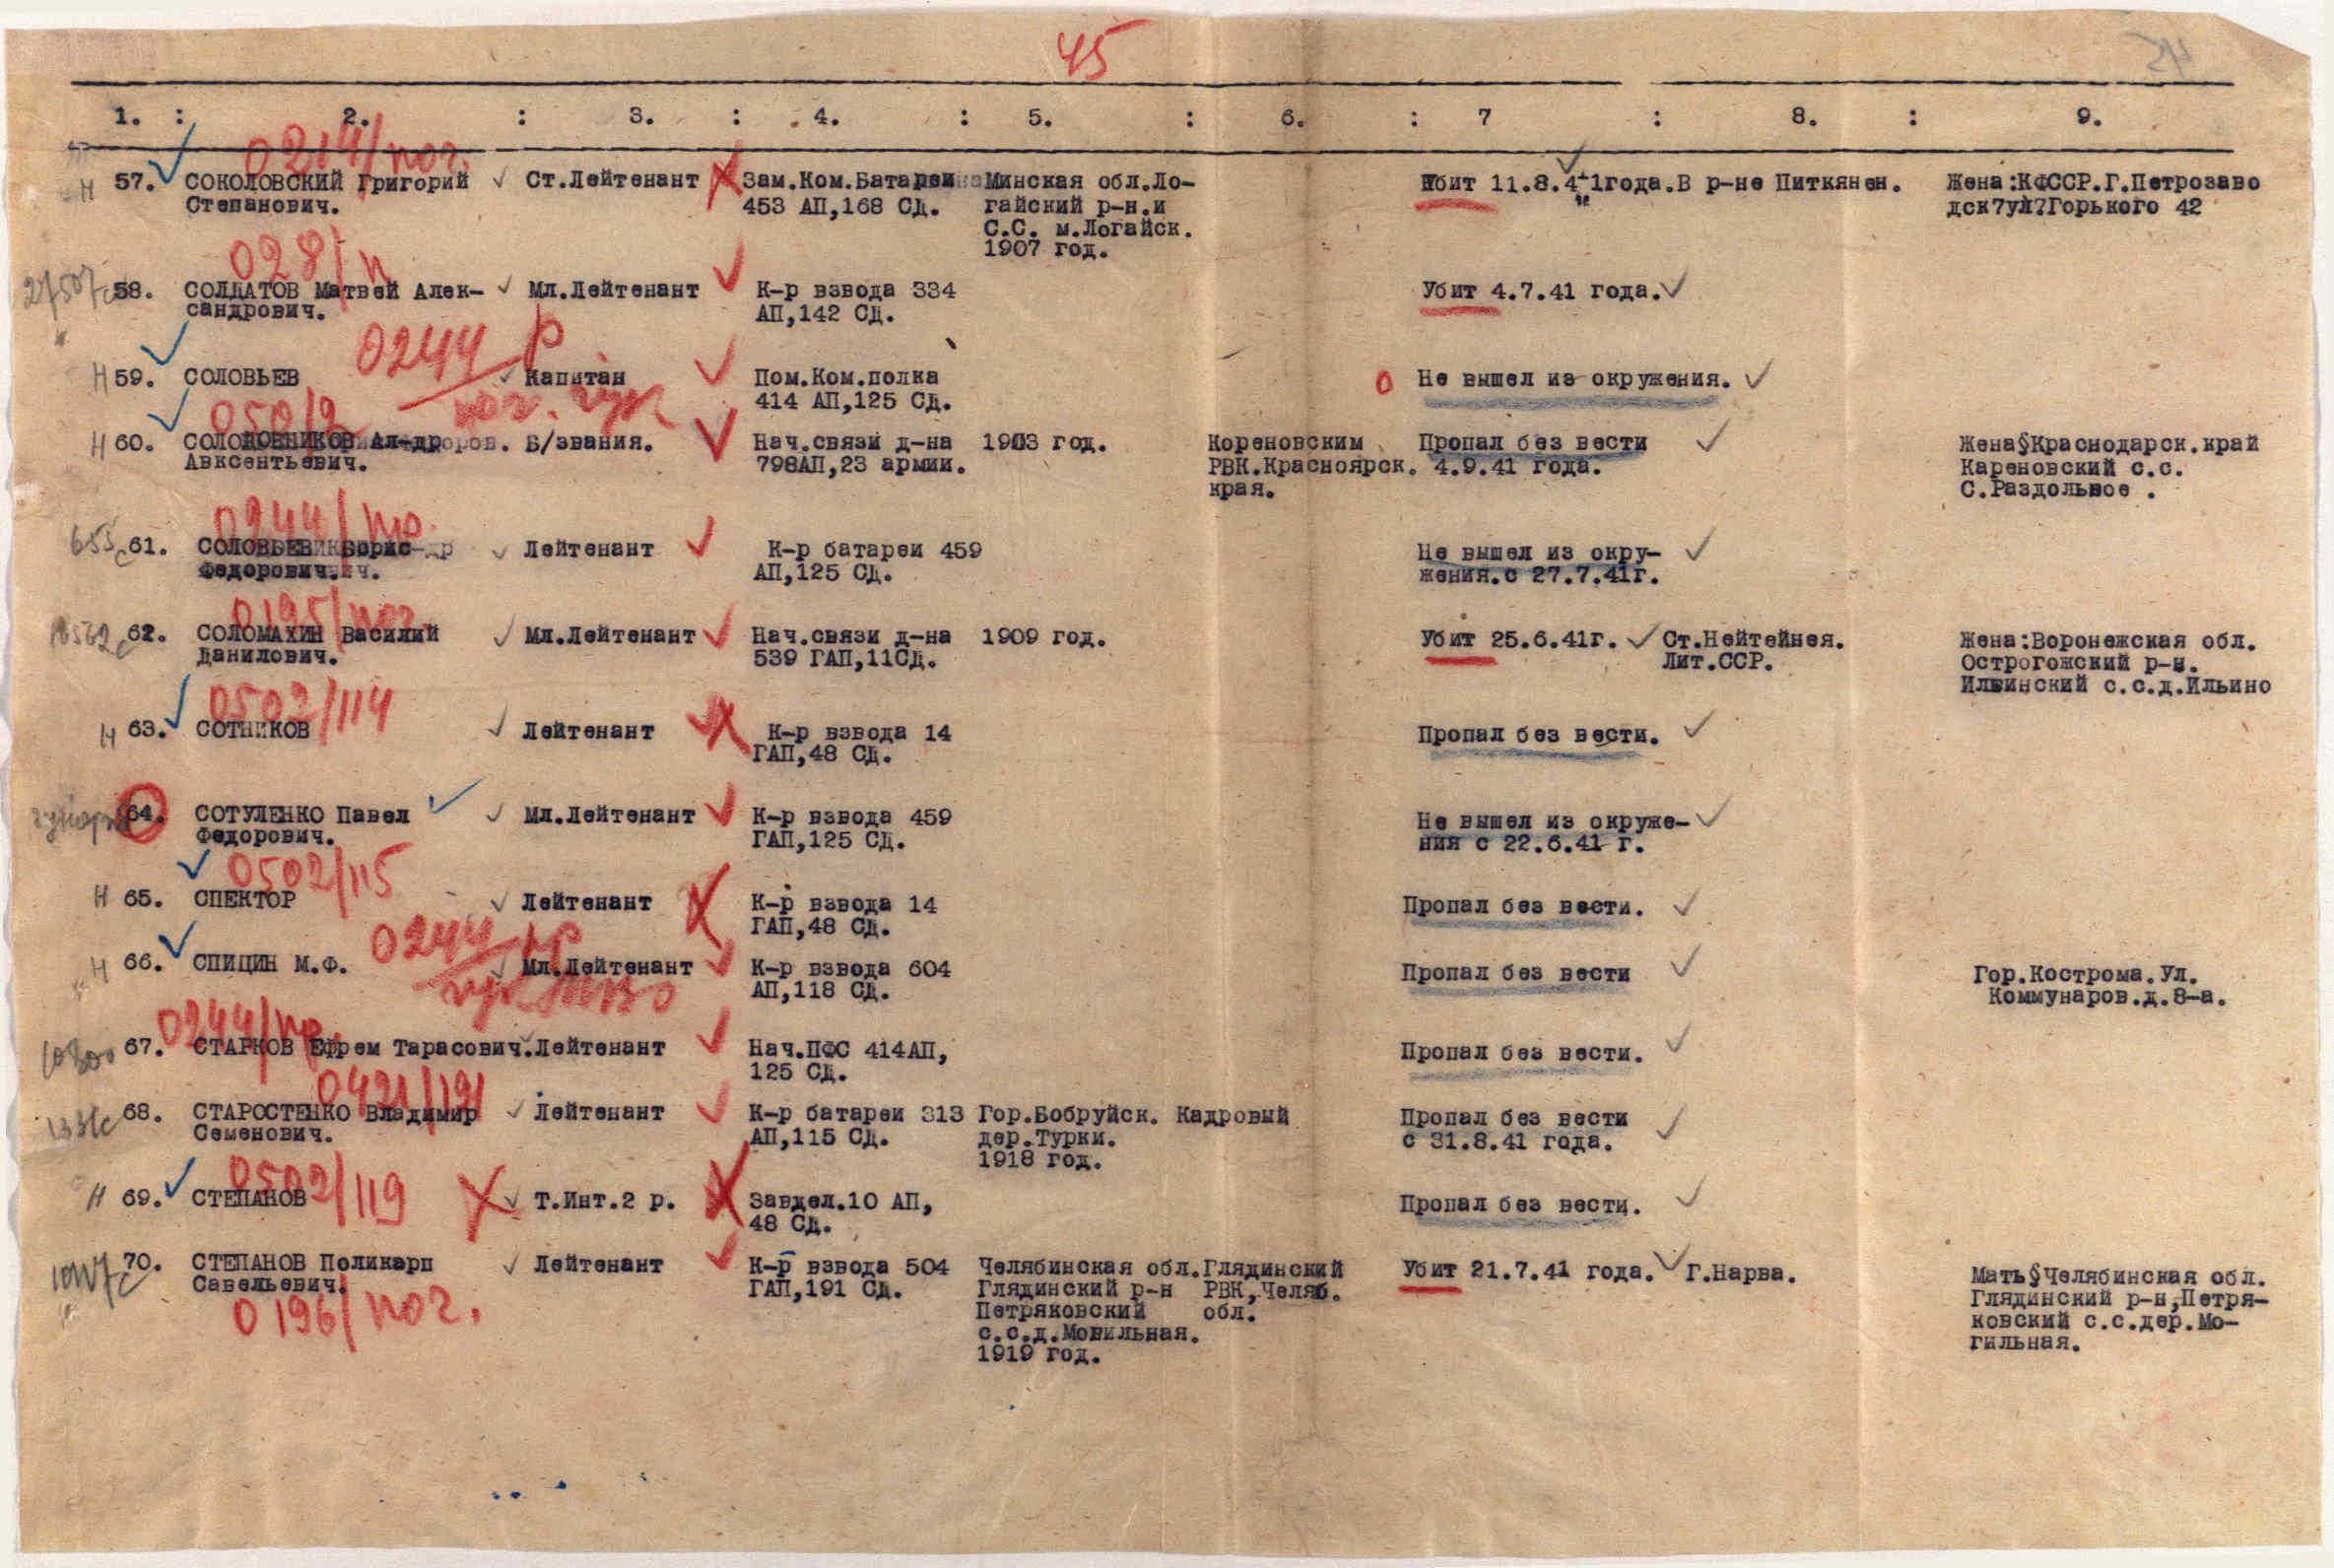 45
1. : 2. : 3. : 4. : 5. : 6. : 7 : 8. : 9.
0214/пог.
Н 57. СОКОЛОВСКИЙ Григорий Ст.Лейтенант Зам.Ком.Батареи Минская обл.Ло- Убит 11.8.41года.В р-не Питкянен. Жена:КФССР.Г.Петрозаво
Степанович. 453 АП,168 СД. гайский р-н.и дск7ул?Горького 42
С.С. м.Логайск.
1907 год.
028/п
58. СОЛДАТОВ Матвей Алек- Мл.Лейтенант К-р взвода 334 Убит 4.7.41 года.
сандрович. АП,142 СД.
0244 р
Н 59. СОЛОВЬЕВ Капитан Пом.Ком.полка О Не вышел из окружения.
414 АП,125 СД.
050/2
Н 60. СОЛОДОВНИКОВ Ал-др Б/звания. Нач.связи д-на 1903 год. Кореновским Пропал без вести Жена§Краснодарск.край
Авксентьевич. 798АП,23 армии. РВК.Красноярск. 4.9.41 года. Кареновский с.с.
края. С.Раздольное .
0244/
61. СОЛОВЬЕВ Борис Лейтенант К-р батареи 459 Не вышел из окру-
Федорович. АП,125 СД. жения.с 27.7.41г.
0195/пог.
62. СОЛОМАХИН Василий Мл.Лейтенант Нач.связи д-на 1909 год. Убит 25.6.41г. Ст.Нейтейнея. Жена:Воронежская обл.
Данилович. 539 ГАП,11СД. Лит.ССР. Острогожский р-н.
Ильинский с.с.д.Ильино
0502/114
Н 63. СОТНИКОВ Лейтенант К-р взвода 14 Пропал без вести.
ГАП,48 СД.
64. СОТУЛЕНКО Павел Мл.Лейтенант К-р взвода 459 Не вышел из окруже-
Федорович. ГАП,125 СД. ния с 22.6.41 г.
0502/115
Н 65. СПЕКТОР Лейтенант К-р взвода 14 Пропал без вести.
ГАП,48 СД.
0244 р
Н 66. СПИЦИН М.Ф. Мл.Лейтенант К-р взвода 604 Пропал без вести Гор.Кострома.Ул.
АП,118 СД. Коммунаров.д.8-а.
0244/
67. СТАРКОВ Ефрем Тарасович.Лейтенант Нач.ПФС 414АП, Пропал без вести.
125 СД.
0421/191
68. СТАРОСТЕНКО Владимир Лейтенант К-р батареи 313 Гор.Бобруйск. Кадровый Пропал без вести
Семенович. АП,115 СД. дер.Турки. с 31.8.41 года.
1918 год.
0502/119
Н 69. СТЕПАНОВ Т.Инт.2 р. Завдел.10 АП, Пропал без вести.
48 СД.
70. СТЕПАНОВ Поликарп Лейтенант К-р взвода 504 Челябинская обл.Глядинский Убит 21.7.41 года. Г.Нарва. Мать§Челябинская обл.
Савельевич. ГАП,191 СД. Глядинский р-н РВК,Челяб. Глядинский р-н,Петря-
Петряковский обл. ковский с.с.дер.Мо-
с.с.д.Мовильная. гильная.
1919 год.
0196/пог.